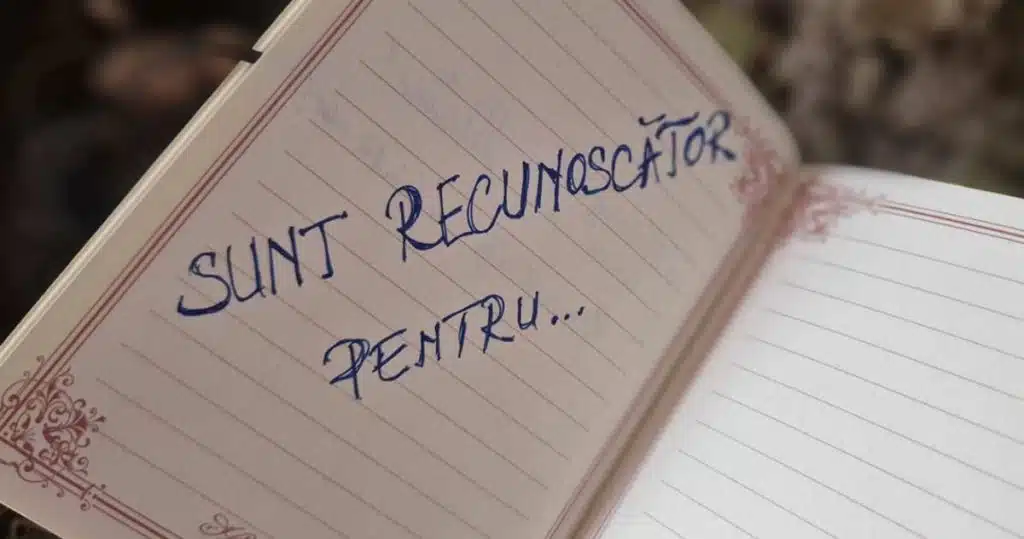 SUNT RECUNOSCĂTOR
PENTRU...